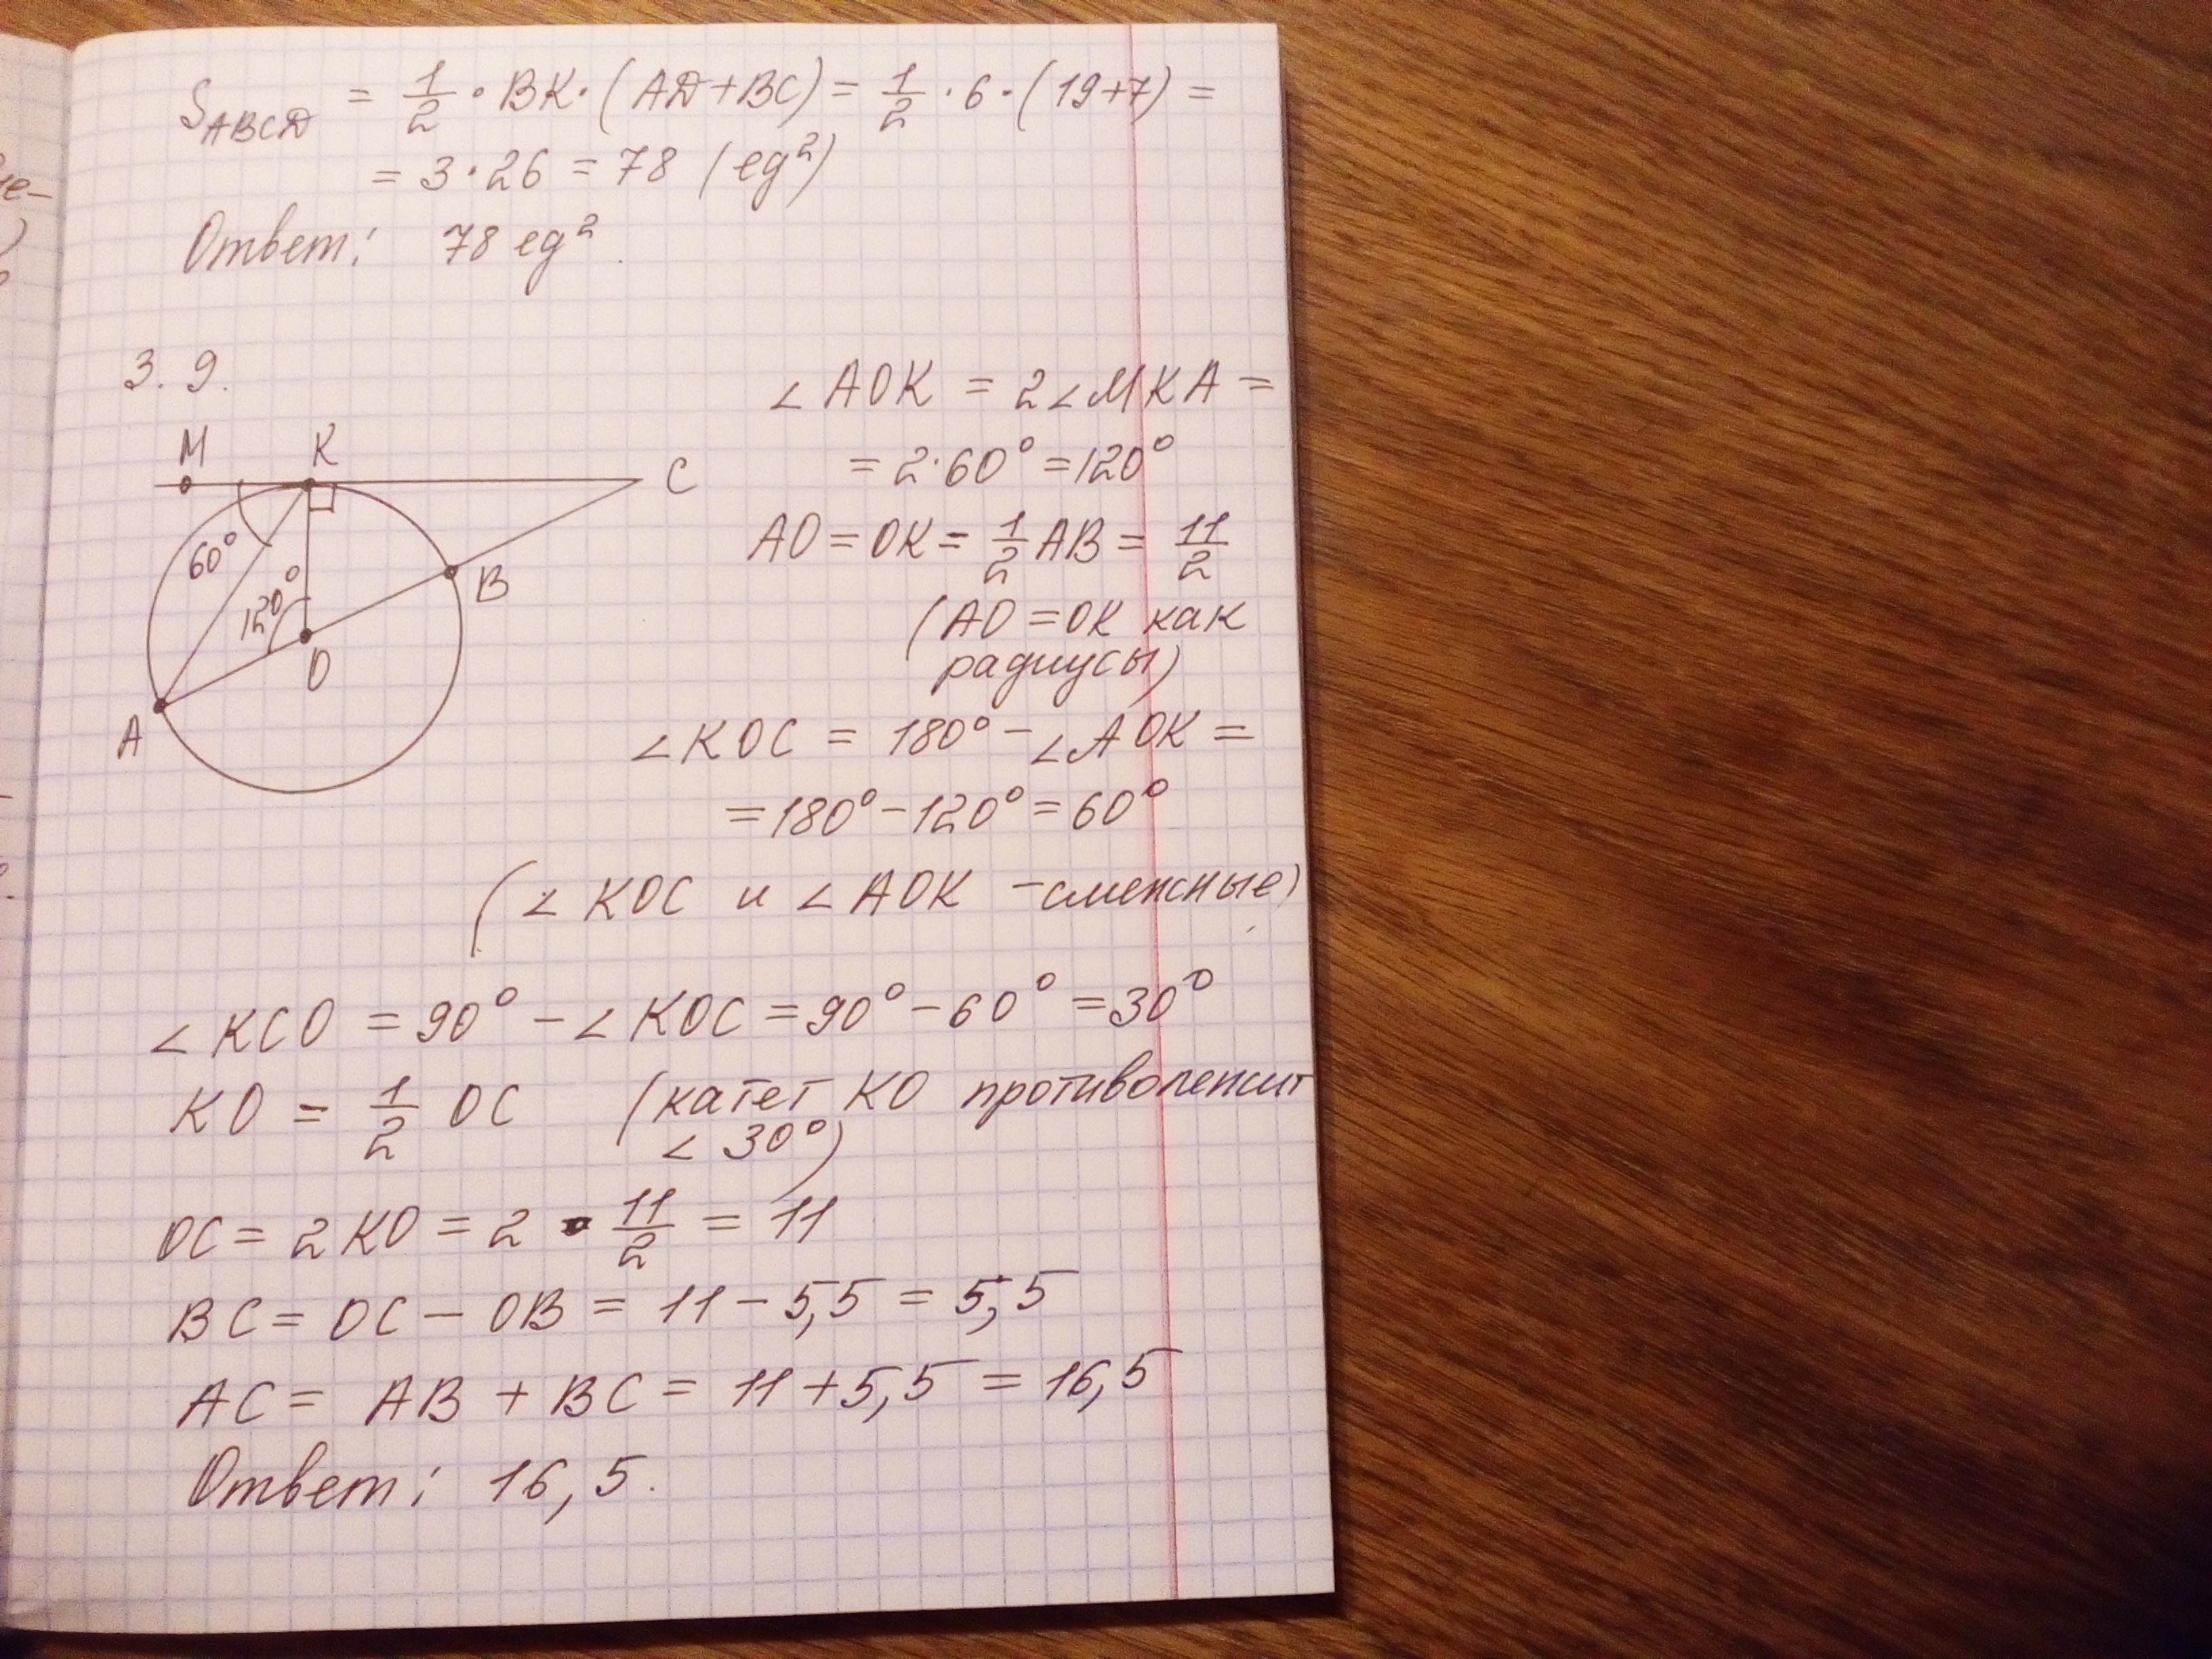 S_ABCD = 1/2 · BK · (AD+BC) = 1/2 · 6 · (19+7) =
= 3·26 = 78 (ед²)
Ответ: 78 ед².
3. 9.
∠AOK = 2∠MKA =
= 2·60° = 120°
M K C
60°
120°
B
O
A
AO = OK = 1/2 AB = 11/2
(AO = OK как
радиусы)
∠KOC = 180° - ∠AOK =
= 180° - 120° = 60°
(∠KOC и ∠AOK - смежные)
∠KCO = 90° - ∠KOC = 90° - 60° = 30°
KO = 1/2 OC (катет KO противолежит
∠30°)
OC = 2KO = 2 · 11/2 = 11
BC = OC - OB = 11 - 5,5 = 5,5
AC = AB + BC = 11 + 5,5 = 16,5
Ответ: 16,5.